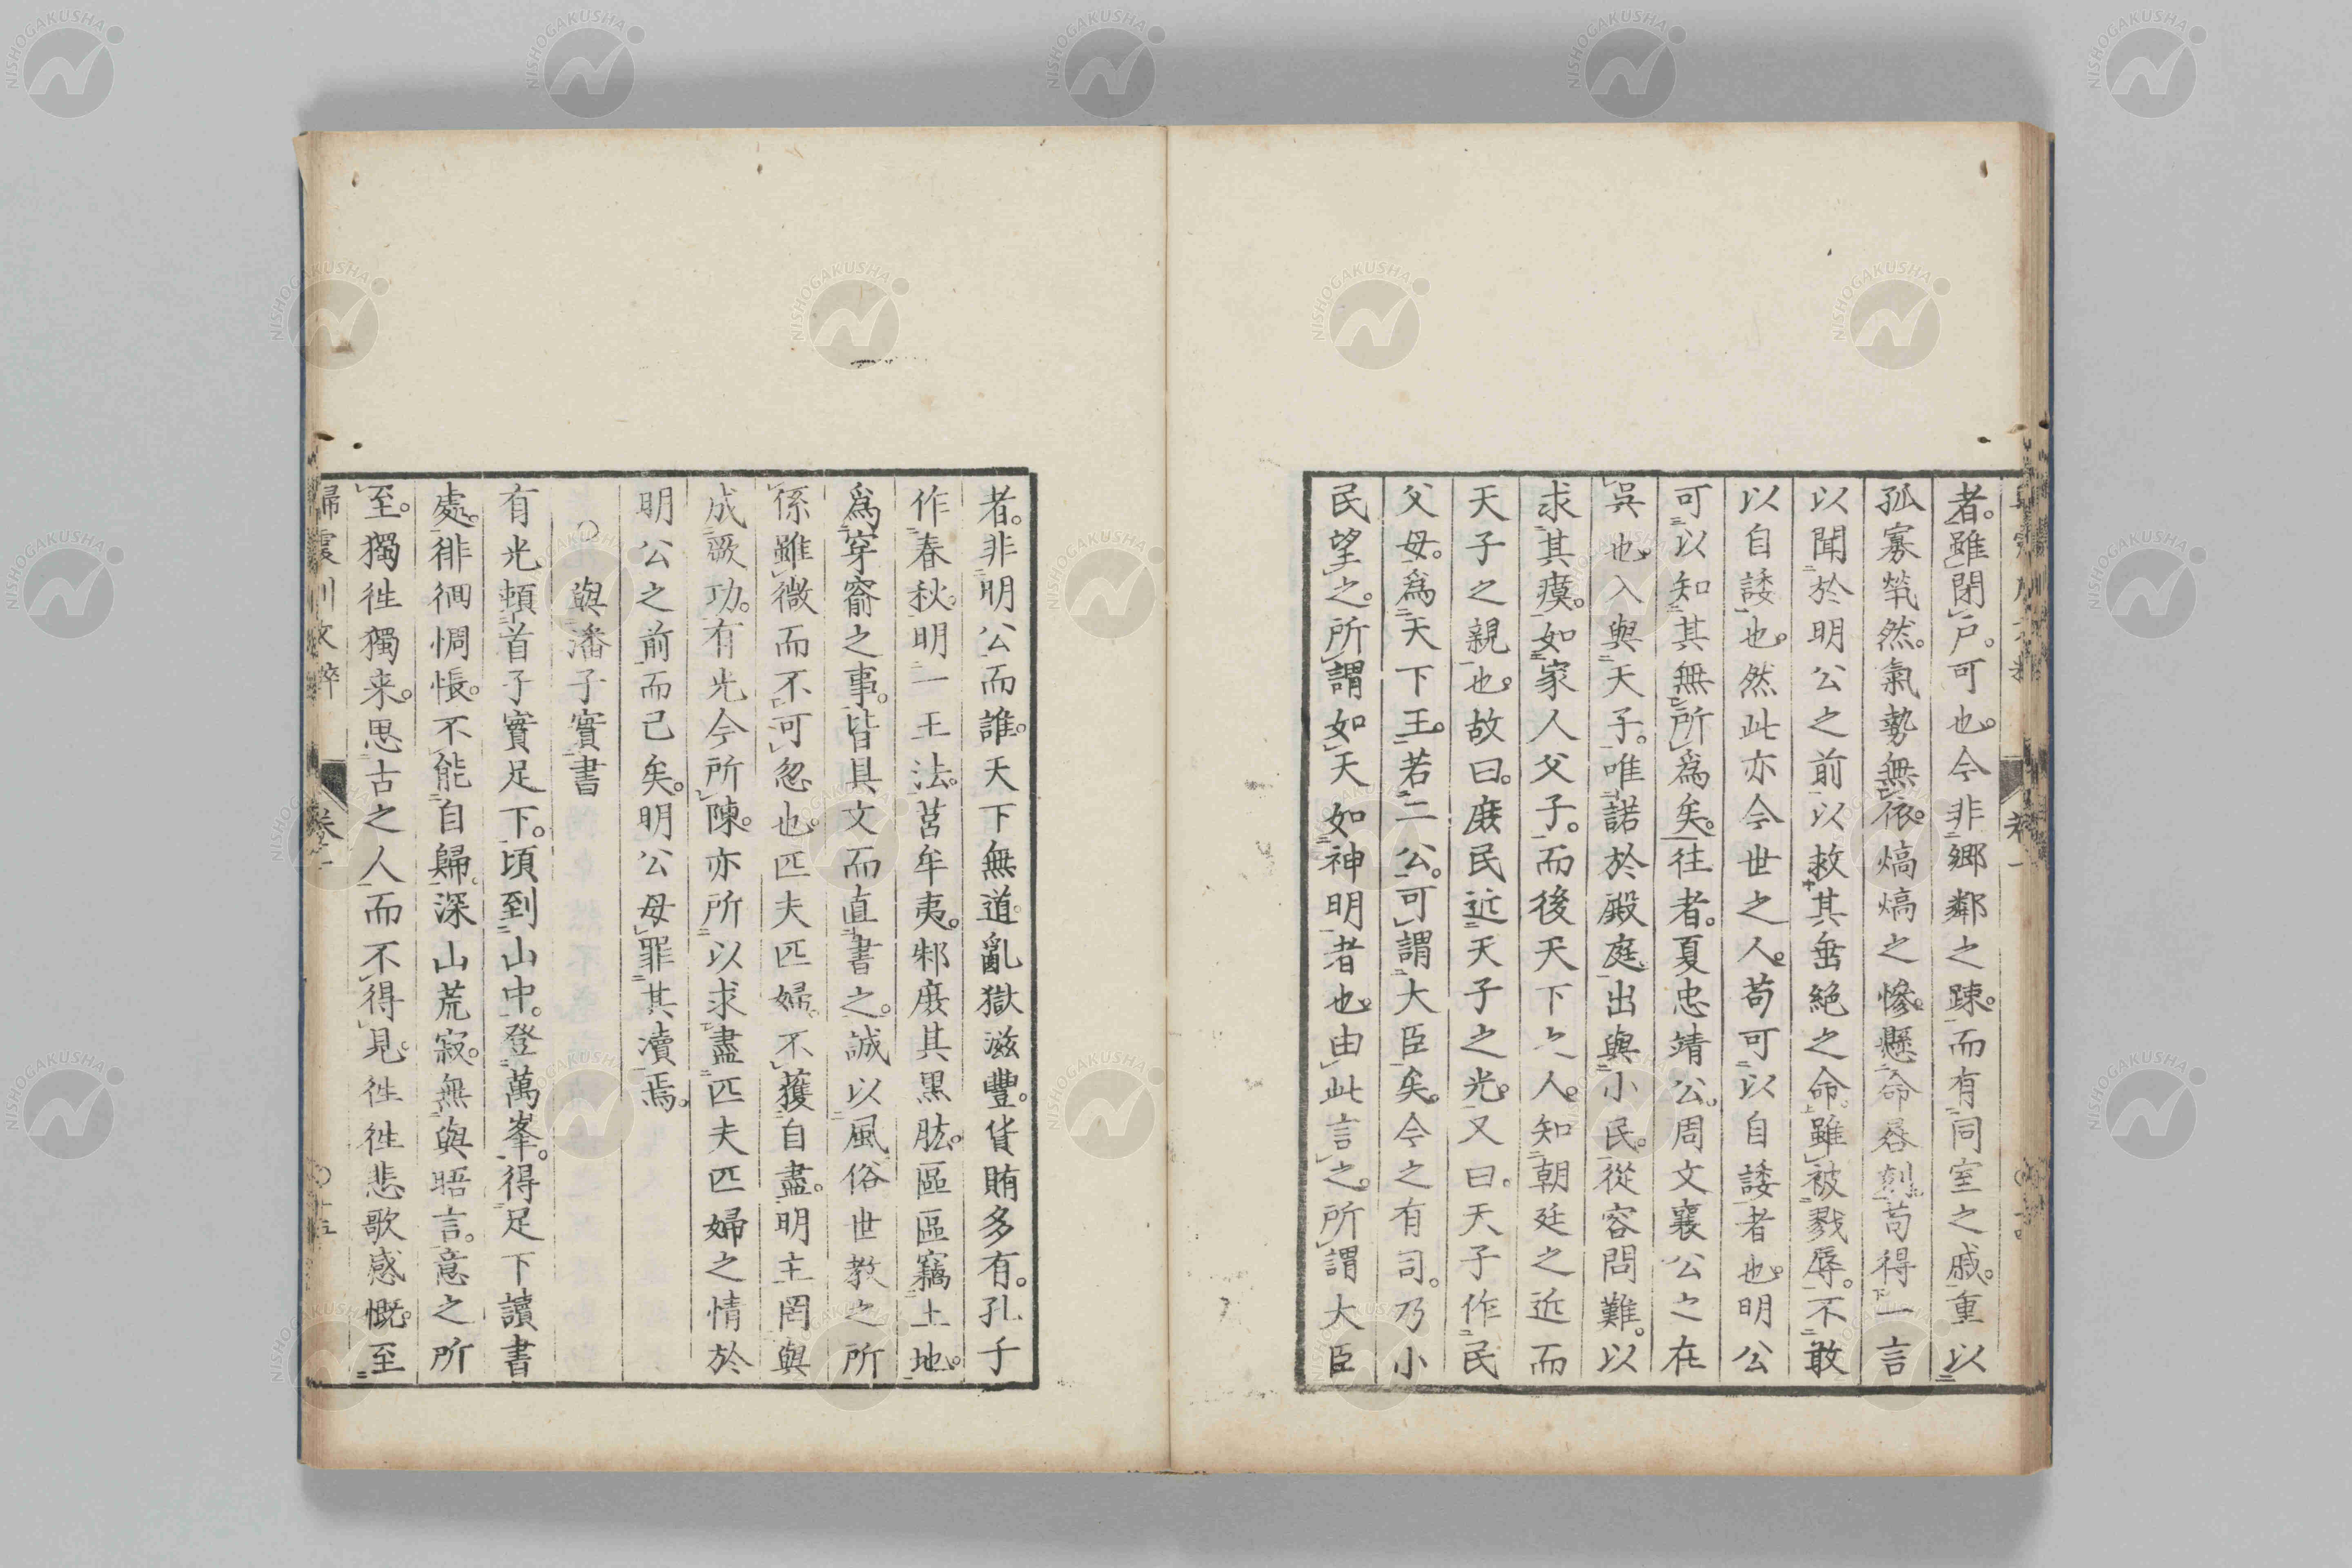 者。雖閉戶。可也。今非鄉鄰之踈。而有同室之戚。重以
孤寡煢然。氣勢無依。熇熇之慘。懸命晷刻。苟得一言
以聞於明公之前。以救其垂絕之命。雖被戮辱。不敢
以自諉也。然此亦今世之人。苟可以自諉者也。明公
可以知其無所爲矣。往者。夏忠靖公。周文襄公之在
吳也。入與天子。唯諾於殿庭。出與小民。從容問難。以
求其瘼。如家人父子。而後天下之人。知朝廷之近而
天子之親也。故曰。庶民近天子之光。又曰。天子作民
父母。爲天下王。若二公。可謂大臣矣。今之有司。乃小
民望之。所謂如天如神明者也。由此言之。所謂大臣
者。非明公而誰。天下無道。亂獄滋豐。貨賄多有。孔子
作春秋。明一王法。莒牟夷。邾庶其黑肱。區區竊土地。
爲穿窬之事。皆具文而直書之。誠以風俗世教之所
係。雖微而不可忽也。匹夫匹婦。不獲自盡。明主罔與
成厥功。有光今所陳。亦所以求盡匹夫匹婦之情於
明公之前而已矣。明公毋罪其瀆焉。
○與潘子實書
有光頓首子實足下。頃到山中。登萬峯。得足下讀書
處。徘徊惆悵。不能自歸。深山荒寂。無與晤言。意之所
至。獨徃獨来。思古之人而不得見。徃徃悲歌感慨。至
歸震川文粹 卷一 ○十五